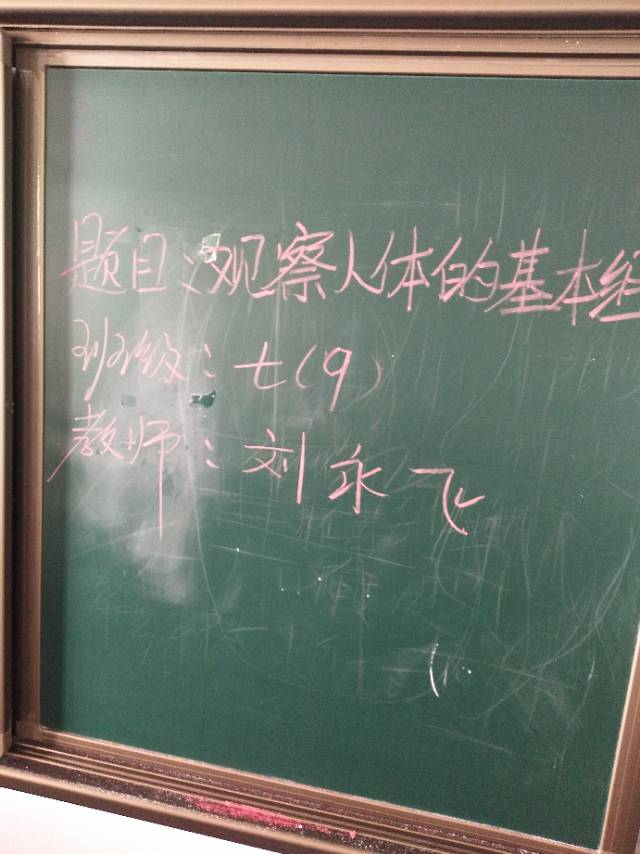 题目:观察人体的基本组
班级:七(9)
教师:刘永飞